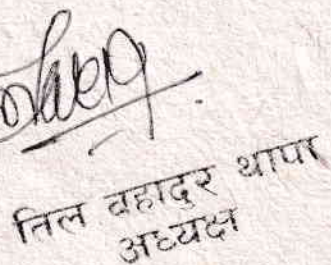 तिल बहादुर थापा
अध्यक्ष